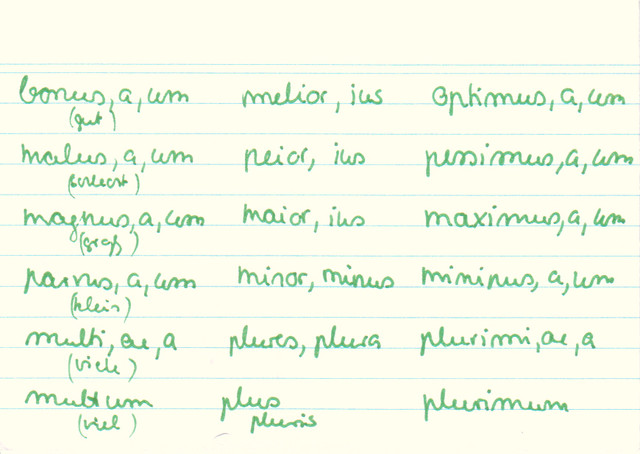 bonus, a, um melior, ius optimus, a, um
(gut)
malus, a, um peior, ius pessimus, a, um
(schlecht)
magnus, a, um maior, ius maximus, a, um
(groß)
parvus, a, um minor, minus minimus, a, um
(klein)
multi, ae, a plures, plura plurimi, ae, a
(viele)
multum plus plurimum
(viel) pluris